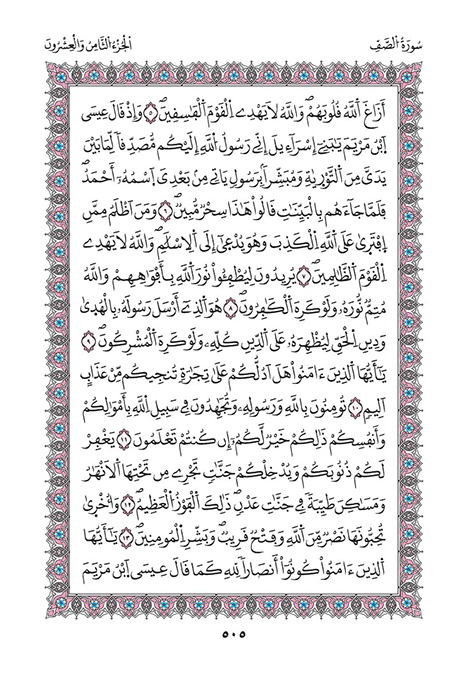 سُورَةُ الصَّفِّ
الجُزْءُ الثَّامِنُ وَالْعِشْرُونَ
أَزَاغَ اَللَّهُ قُلُوبَهُمْ وَاللَّهُ لَا يَهْدِے اِلْقَوْمَ اَلْفَٰسِقِينَ ٥ وَإِذْ قَالَ عِيسَى
اَبْنُ مَرْيَمَ يَٰبَنِے إِسْرَآءِيلَ إِنِّے رَسُولُ اللَّهِ إِلَيْكُم مُّصَدِّقاً لِّمَا بَيْنَ
يَدَيَّ مِنَ اَلتَّوْرَىٰةِ وَمُبَشِّراً بِرَسُولٍ يَاتِے مِنۢ بَعْدِيَ اَسْمُهُۥٓ أَحْمَدُ
فَلَمَّا جَآءَهُم بِالْبَيِّنَٰتِ قَالُوا۟ هَٰذَا سِحْرٌ مُّبِينٌ ٦ وَمَنَ اَظْلَمُ مِمَّنِ
اِفْتَرَىٰ عَلَى اَللَّهِ اِلْكَذِبَ وَهُوَ يُدْعَىٰٓ إِلَى اَلِاسْلَٰمِ وَاللَّهُ لَا يَهْدِے
اِلْقَوْمَ اَلظَّٰلِمِينَ ٧ يُرِيدُونَ لِيُطْفِـُٔوا۟ نُورَ اَللَّهِ بِأَفْوَٰهِهِمْ وَاللَّهُ
مُتِمٌّ نُورَهُۥ وَلَوْ كَرِهَ اَلْكَٰفِرُونَ ٨ هُوَ اَلَّذِےٓ أَرْسَلَ رَسُولَهُۥ بِالْهُدَىٰ
وَدِينِ اِلْحَقِّ لِيُظْهِرَهُۥ عَلَى اَلدِّينِ كُلِّهِۦ وَلَوْ كَرِهَ اَلْمُشْرِكُونَ ٩
يَٰٓأَيُّهَا اَلَّذِينَ ءَامَنُوا۟ هَلَ اَدُلُّكُمْ عَلَىٰ تِجَٰرَةٍ تُنجِيكُم مِّنْ عَذَابٍ
اَلِيمٍ ١٠ تُومِنُونَ بِاللَّهِ وَرَسُولِهِۦ وَتُجَٰهِدُونَ فِے سَبِيلِ اِللَّهِ بِأَمْوَٰلِكُمْ
وَأَنفُسِكُمْ ذَٰلِكُمْ خَيْرٌ لَّكُمُۥٓ إِن كُنتُمْ تَعْلَمُونَ ١١ يَغْفِرْ
لَكُمْ ذُنُوبَكُمْ وَيُدْخِلْكُمْ جَنَّٰتٍ تَجْرِے مِن تَحْتِهَا اَلَانْهَٰرُ
وَمَسَٰكِنَ طَيِّبَةً فِے جَنَّٰتِ عَدْنٍ ذَٰلِكَ اَلْفَوْزُ اُلْعَظِيمُ ١٢ وَأُخْرَىٰ
تُحِبُّونَهَا نَصْرٌ مِّنَ اَللَّهِ وَفَتْحٌ قَرِيبٌ وَبَشِّرِ اِلْمُومِنِينَ ١٣ يَٰٓأَيُّهَا
اَلَّذِينَ ءَامَنُوا۟ كُونُوٓا۟ أَنصَاراً لِّلهِ كَمَا قَالَ عِيسَى اَبْنُ مَرْيَمَ
٥٠٥